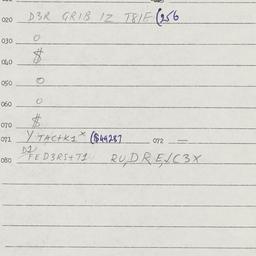 020 D3R GRIB IZ T8IF (256
030 0
$
040
050 0
060 0
070 $
071 YTACTK1X ($44287 072 —
080 FED3RST71 2U,DRE,1C3X